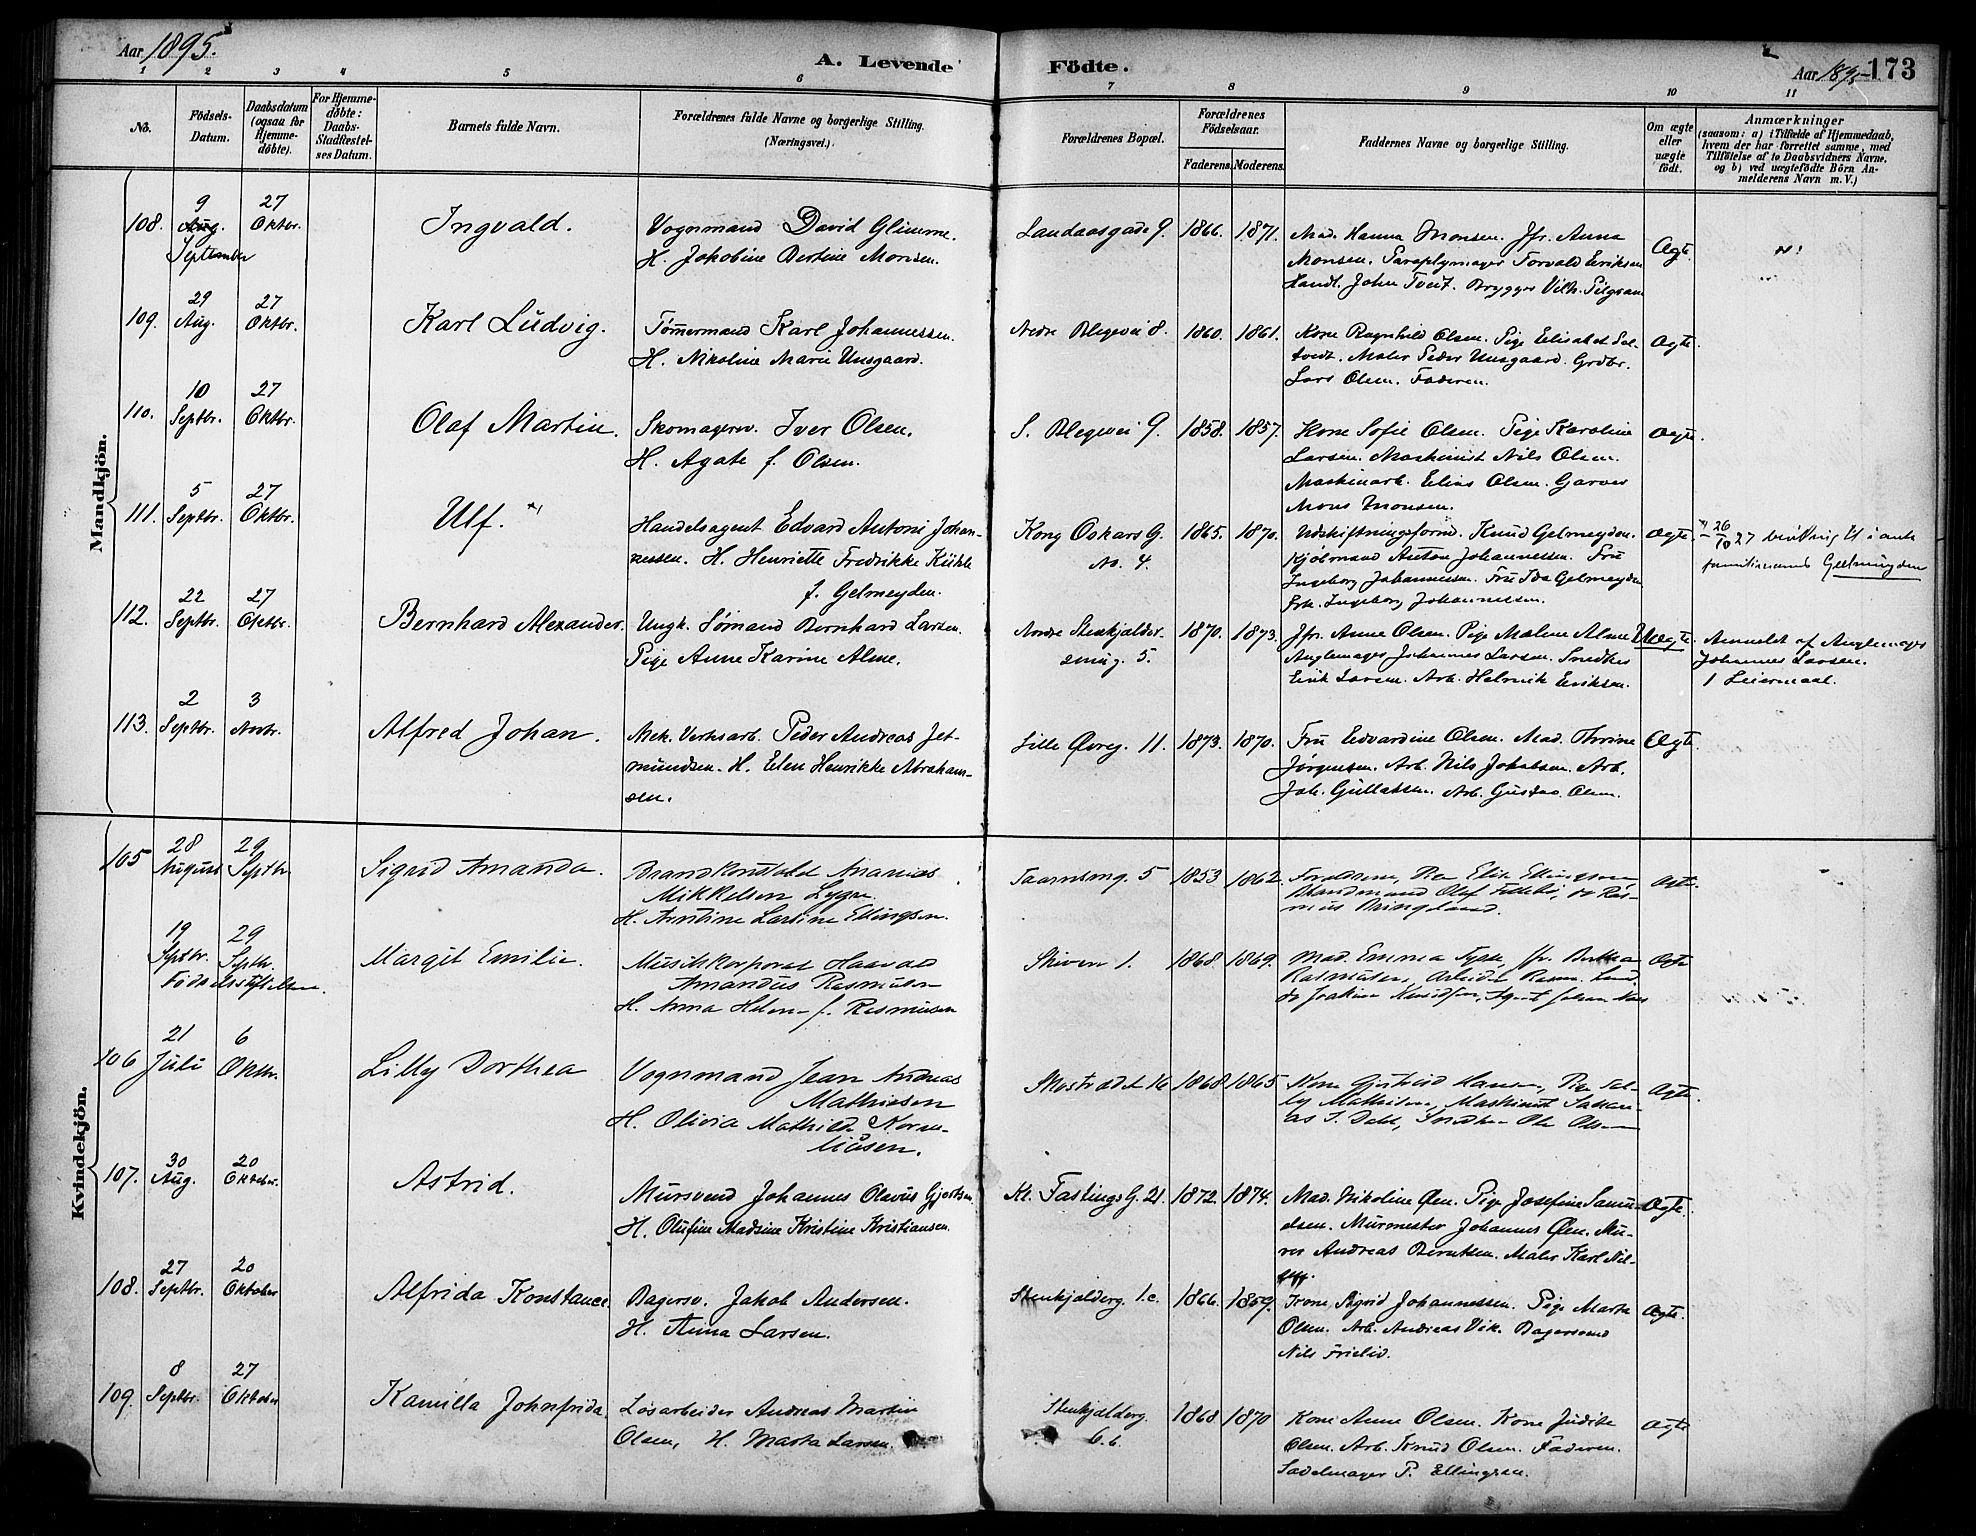 Aar 1895.
A. Levende Födte.
Aar 1895 173
1 2 3 4 5 6 7 8 9 10 11
No.
Födsels-Datum.
Daabsdatum (ogsaa for Hjemme-döbte).
For Hjemme-döbte: Daabs-Stadfæstel-ses Datum.
Barnets fulde Navn.
Forældrenes fulde Navne og borgerlige Stilling.
(Næringsvei.)
Forældrenes Bopæl.
Forældrenes Födselsaar.
Faderens. Moderens.
Faddernes Navne og borgerlige Stilling.
Om ægte eller uægte födt.
Anmærkninger
(saasom: a) i Tilfælde af Hjemmedaab, hvem der har forrettet samme, med Tilföielse af to Daabsvidners Navne, og b) ved uægtefödte Börn Anmelderens Navn m. V.)
Mandkjön.
108. 9 Aug. September 27 Oktbr. Ingvald. Vognmand David Glimme. Landaasgade 9. 1866. 1871. Mad. Hanna Monsen. Jfr. Anna Ægte
H. Jakobine Bertine Monsen. Monsen. Paraplymager Torvald Eriksen
Handl. John Tveit. Brygger Vilh.
109. 29 Aug. 27 Oktbr. Karl Ludvig. Tømmermand Karl Johannessen. Nedre Blegevei 8. 1860. 1861. Kone Ragnhild Olsen. Pige Elisabet Ægte.
H. Nikoline Marie Unsgaard. Maler Peder Unsgaard. Grdbr.
Lars Olsen. Faderen.
110. 10 Septbr. 27 Oktbr. Olaf Martin. Skomagersv. Iver Olsen. S. Blegevei 9. 1858. 1857. Kone Sofie Olsen. Pige Karoline Ægte.
H. Agate f. Olsen. Larsen. Maskinist Nils Olsen.
Maskinarb. Elias Olsen. Garver
Mons Monsen.
111. 5 Septbr. 27 Oktbr. Ulf. Handelsagent Edvard Antoni Johan- Kong Oskars G. 1865. 1870. Udskiftningsform. Knud Gelmeyden. Ægte.
nessen. H. Henriette Fredrikke No. 4. Kjøbmand Anton Johannessen. Fru
f. Gelmeyden. Ingeborg Johannessen. Fru Ida Gelmeyden
Frk. Ingeborg Johannessen.
26/10 27 U. i anta
familienavnet Geelmuyden
112. 22 Septbr. 27 Oktbr. Bernhard Alexander. Ungk. Sømand Bernhard Larsen. 1870. 1873. Jfr. Anne Olsen. Pige Malene Alme Uægte Anmeldt af Anglemager
Pige Anne Karine Alme. smug. 5. Anglemager Johannes Larsen. Snedker Johannes Larsen.
Erik Larsen. Arb. Helmik Eriksen. 1 Leiermaal.
113. 2 Septbr. 3 Novbr. Alfred Johan. Mek. Verksarb. Peder Andreas Jet- Lille Øvreg. 11. 1873. 1870. Fru Edvardine Olsen. Mad. Thrine Ægte
mundsen. H. Elen Henrikke Abraham- Jørgensen. Arb. Nils Jakobsen. Arb.
sen. Joh. Gullaksen. Arb. Gustav Olsen.
Kvindekjön.
105 28 August 29 Septbr. Sigrid Amanda. Brandkonstabel Ananias 5 1853 1862 Forældrene, Ægte.
Mikkelsen Lygre
H. Larsine Ellingsen.
19 Septbr. 29 Septbr. Margit Emilie. Musikkorporal Skiven 1. 1868 1869 Mad. Emma Ægte
Fødselsstiftelsen. Amandus Rasmussen Rasmussen, Arbeider
H. Anna Helene f. Rasmussen Joakim Knudsen, Agent Johan
106 21 Juli 6 Oktbr. Lilly Dorthea Vognmand Jean Andreas 16 1868 1865 Kone Hansen, Ægte.
Mathiesen Mathiesen, Maskinist
H. Olivia Mathilde Dahl, Snedker Ole Olsen
107. 30 Aug. 20 Oktober. Astrid. Mursvend Johannes Olavus Gjertsen Kl. Fastings G. 21. 1872. 1874. Mad. Nikoline Øen. Pige Josefine Samu- Ægte.
H. Olufine Madsine Kristine Kristiansen. elsen. Murmester Johannes Øen. Mu-
rer Andreas Berntsen. Maler Karl Nil-
sen.
108. 27 Septbr. 20 Oktober Alfrida Konstance. Bagersv. Jakob Andersen. Stenkjelderg. 1.c. 1866. 1859. Kone Sigrid Johannessen. Pige Marta Ægte.
H. Anna Larsen. Olsen. Arb. Andreas Vik. Bagersvend
Nils Frielid.
109. 8 Septbr. 27 Oktober Kamilla Johnfrida. Løsarbeider Andreas Martin Stenkjelderg. 1868 1870 Kone Anne Olsen. Kone Judite Ægte
Olsen, H. Marta Larsen. 6.b. Olsen. Arb. Knud Olsen. Faderen.
Sadelmager P. Ellingsen.